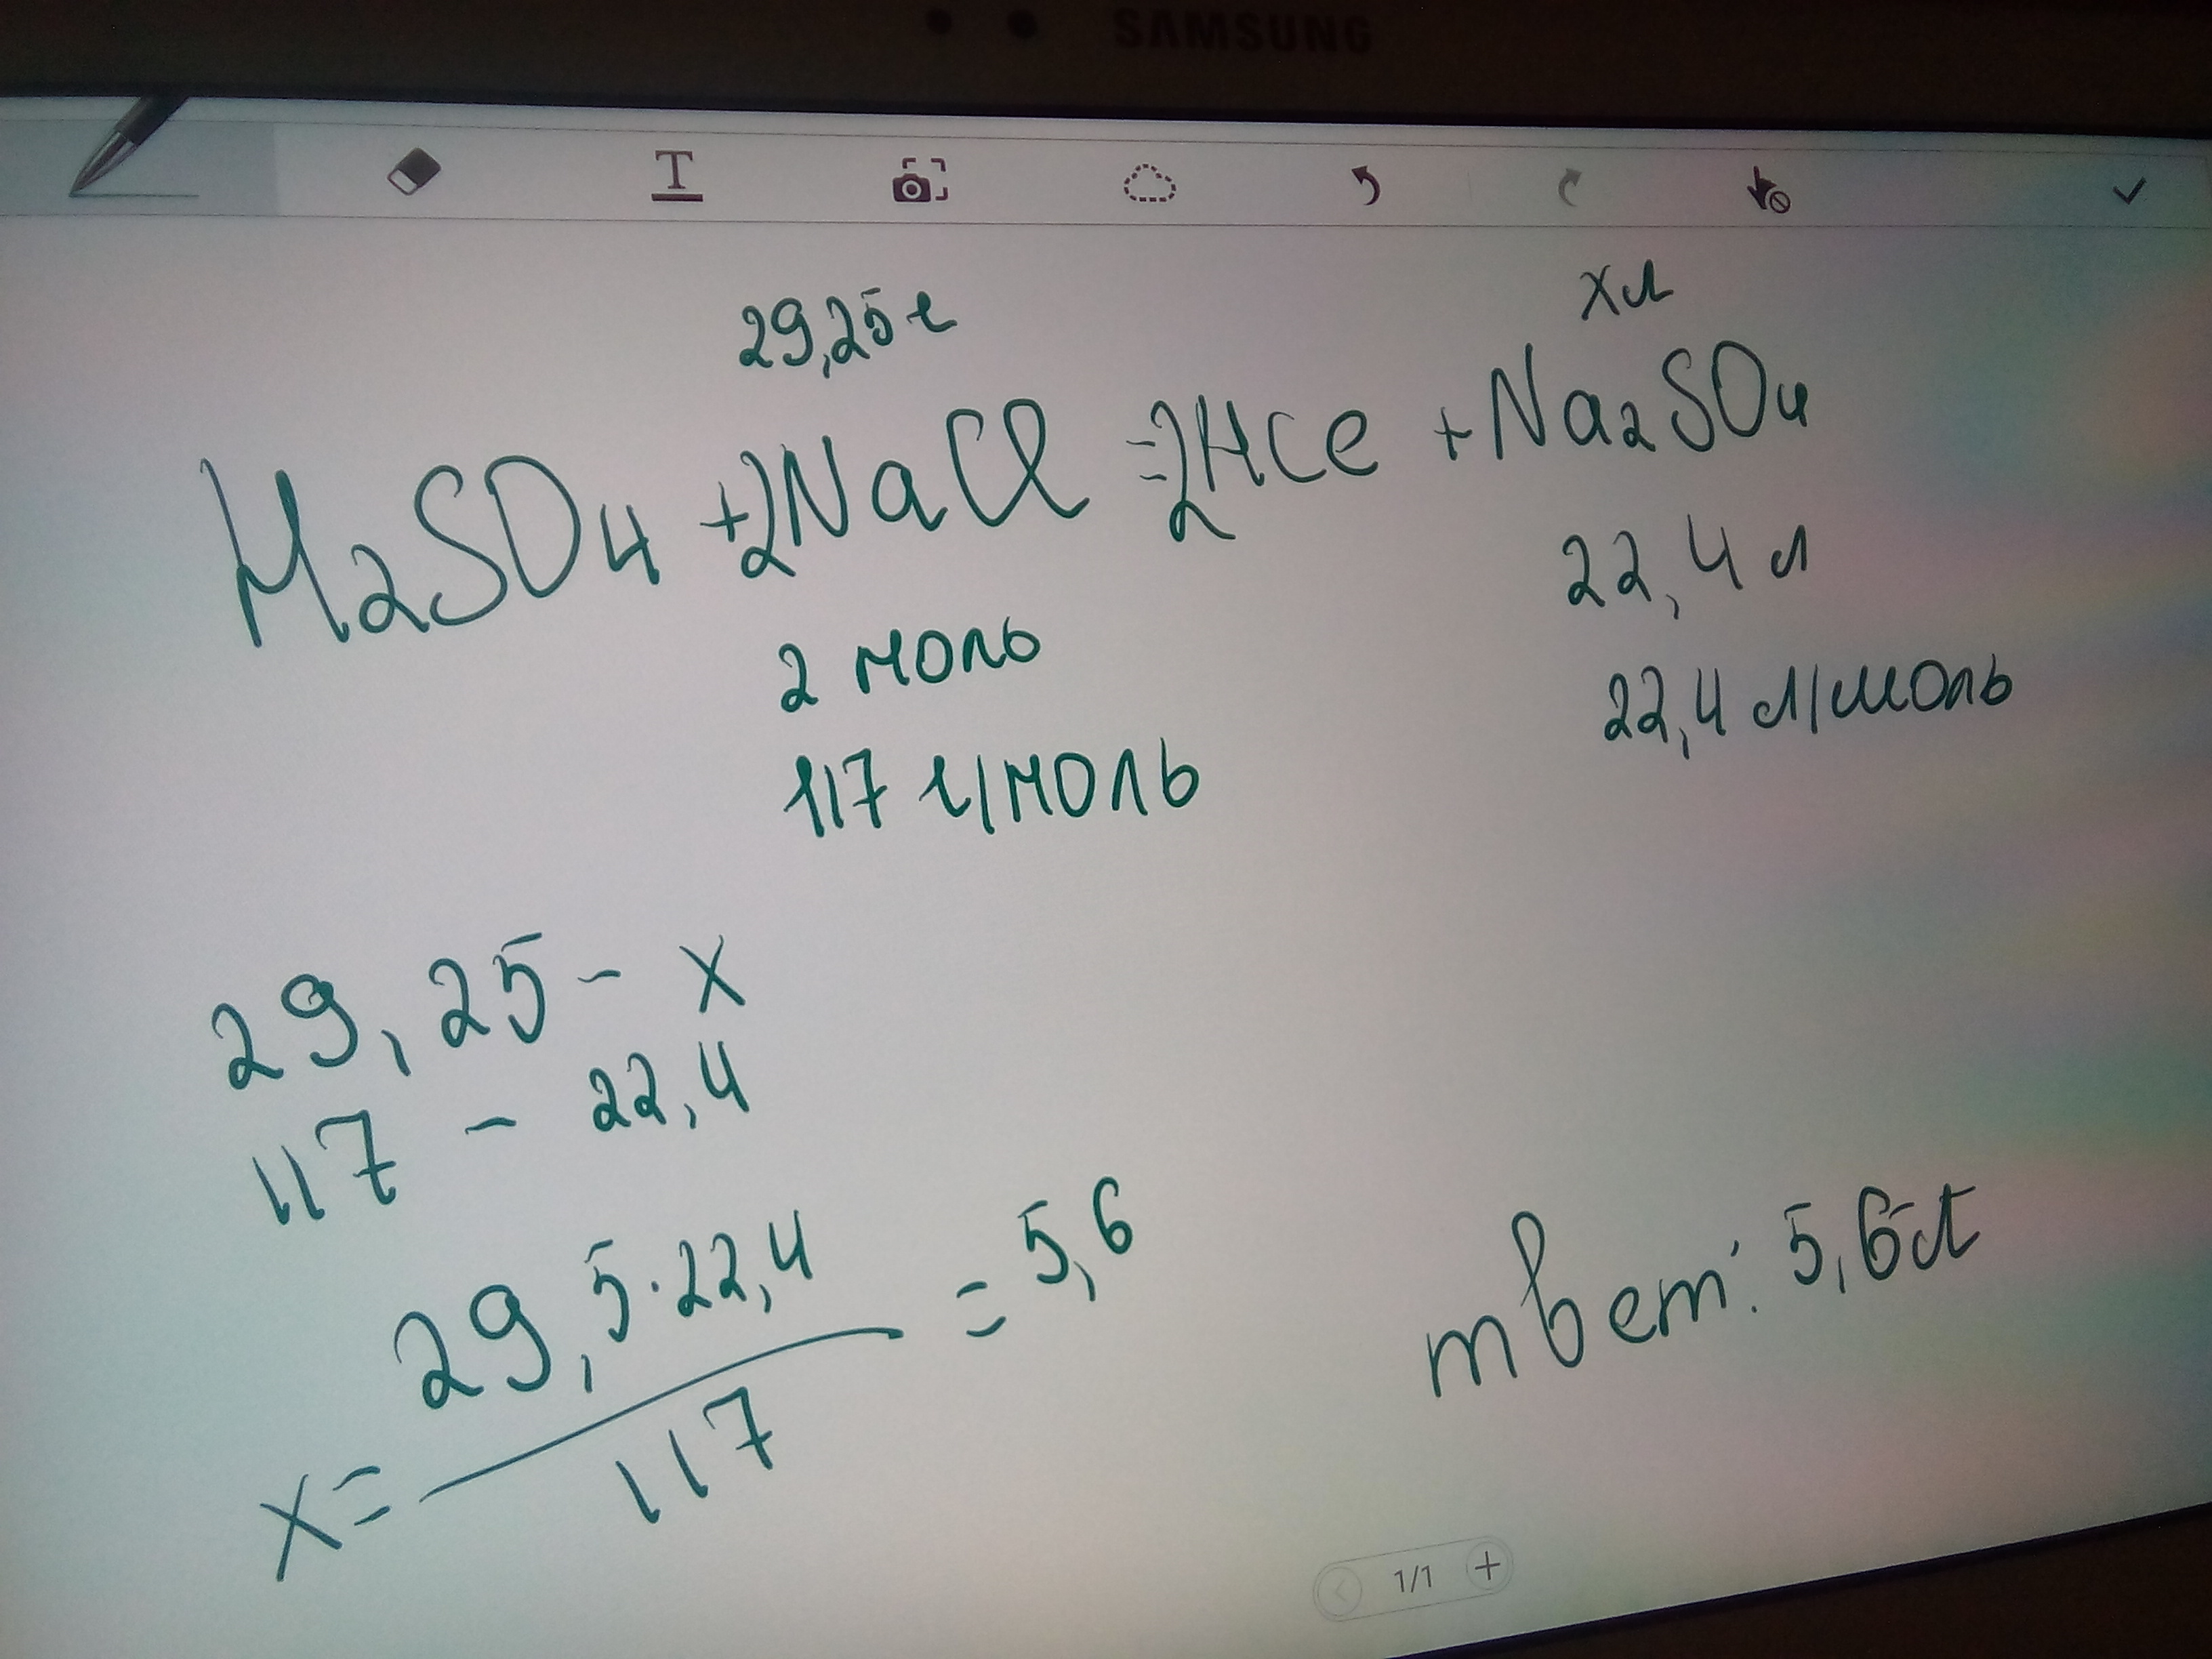 SAMSUNG
T
29,25г
хл
H2SO4 +2NaCl =2HCl +Na2SO4
2 моль
22,4 л
117 г/моль
22,4 л/моль
29,25 - x
117 - 22,4
x= 29,5·22,4 / 117 = 5,6
твет: 5,6л
1/1 +